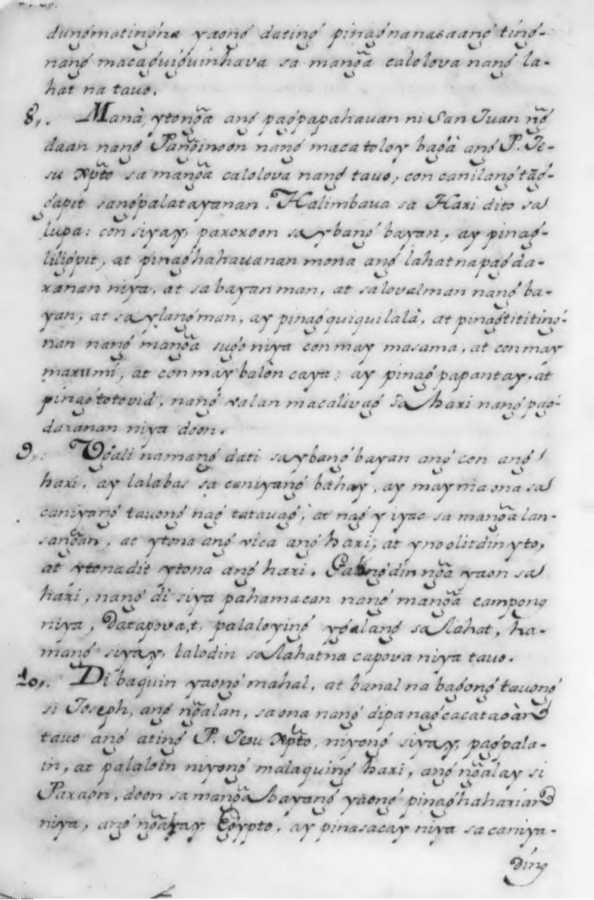 dungmatingña yaong dating pinagnanasaang ting-
nang macaguiguinhava sa mangã calolova nang la-
hat na tauo.
8,. Manà, ytongã ang pagpapahauan ni San Juan ng̃
daan nang Pang̃inoon nang macatoloy bagà ang P. Je-
su Xpto sa mangã calolova nang tauo, con canilang tãg-
gapit sangpalatayanan. Halimbaua sa Hari dito sa
lupa: con siyay, paroroon sa ybang bayan, ay pinag-
liligpit, at pinaghahauanan mona ang lahat na pagda-
ranan niya, at sa bayan man, at sa loualman nang ba-
yan, at sa ylang man, ay pinagquiquilalà, at pinagtititing-
nan nang mangã sugo niya con may masama, at con may
marumi, at con may balon caya: ay pinag papantay, at
pinag totovid, nang valan macaliuag sa hari nang pag-
daranan niya doon.
9,. Vgali namang dati sa ybang bayan ang con ang
hari, ay lalabas sa caniyang bahay, ay may naona sa
caniyang tauong nag tatauag, at nag y iyac sa mangã lan-
sang̃an, at ytona ang vica ang hari, at ynoolitdin yto,
at ytonadit ytona ang hari. Galang din ng̃a yaon sa
hari, nang di siya pahamacan nang mangã campong
niya, Datapova,t, palaloying ygalang sa lahat, ha-
mang siyay, lalodin sa lahatna capova niya tauo.
10,. Di baquin yaong mahal, at banal na bagong tauong
si Joseph, ang ng̃alan, sa ona nang dipanagcacataoàng
tauo ang ating P. Jesu Xpto, niyong siyay, pagpala-
in, at palaloin niyong malaquing hari, ang ng̃alay si
Paraon, doon sa mangã bayang yaong pinaghaharian
niya, ang ng̃alay, Egypto, ay pinasacay niya sa caniya-
ding